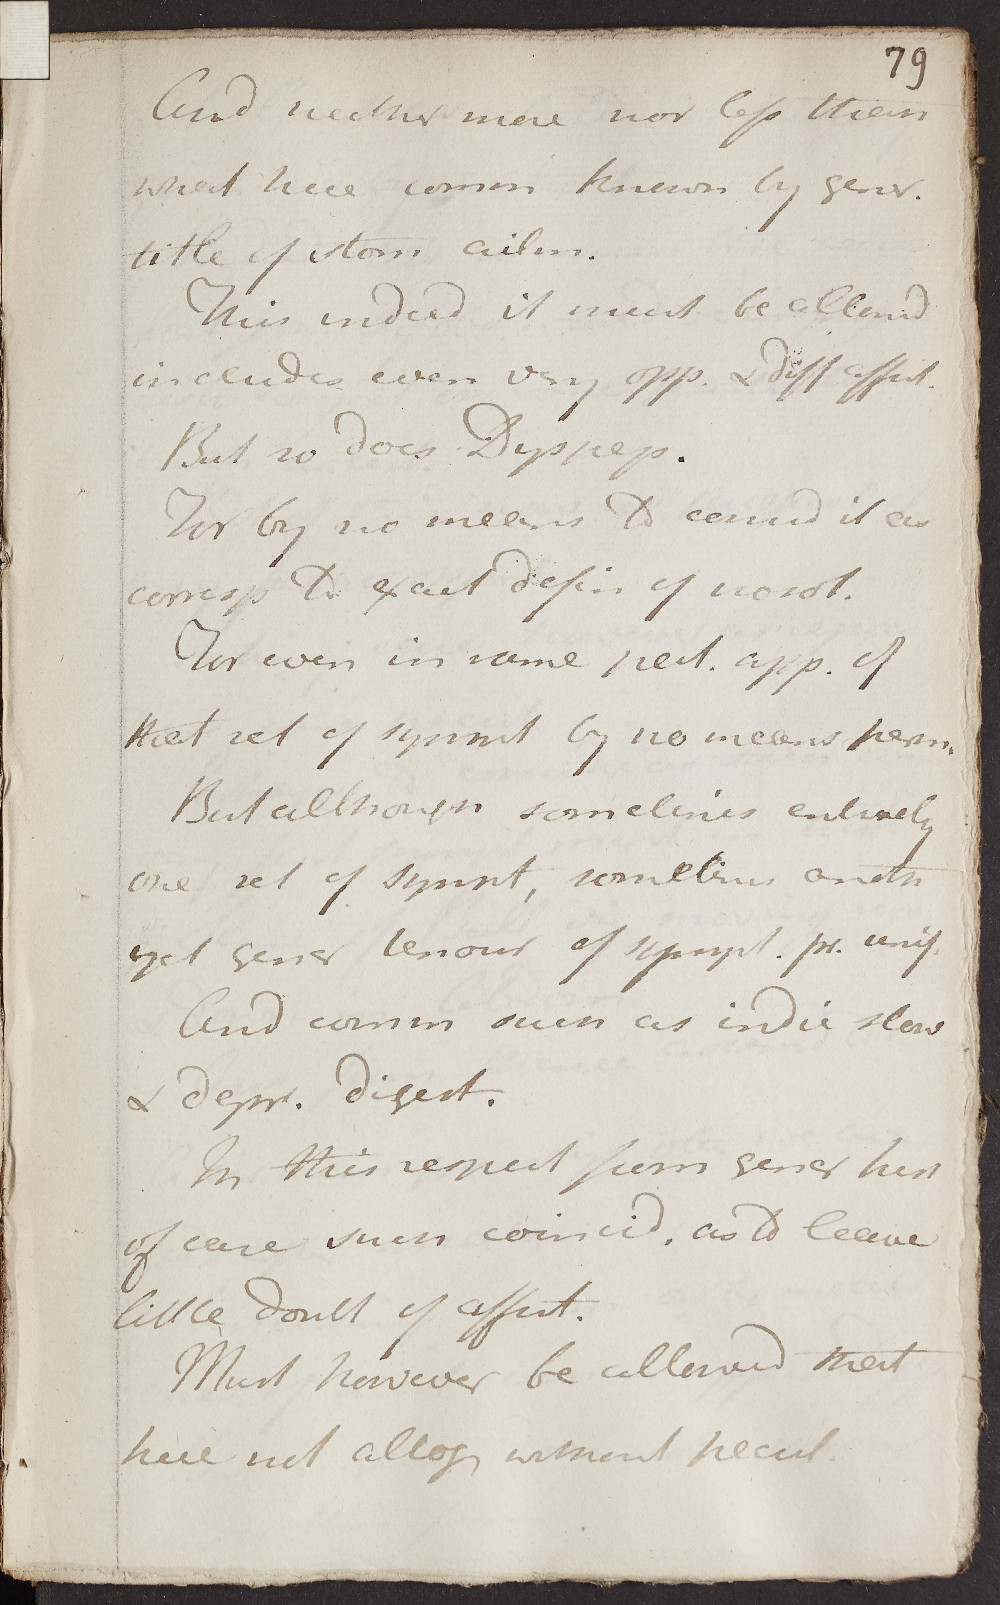 79
And neither more nor less than
what here comm known by gener.
title of stom ailm.
This indeed it must be allowd
includes even very opp. & diff affect.
But so does Dyspeps.
For by no means to consid it as
corresp to exact defin of nosol.
For even in same pect. app. of
that set of sympt by no means perm.
But although sometimes entirely
one set of sympt, sometims anoth
yet gener tenour of sympt. pr. unif.
And comm such as indic slow
& depr. digest.
In this respect from gener hist
of case such coincid. as to leave
little doubt of affect.
Must however be allowed that
here not altog without pecul.